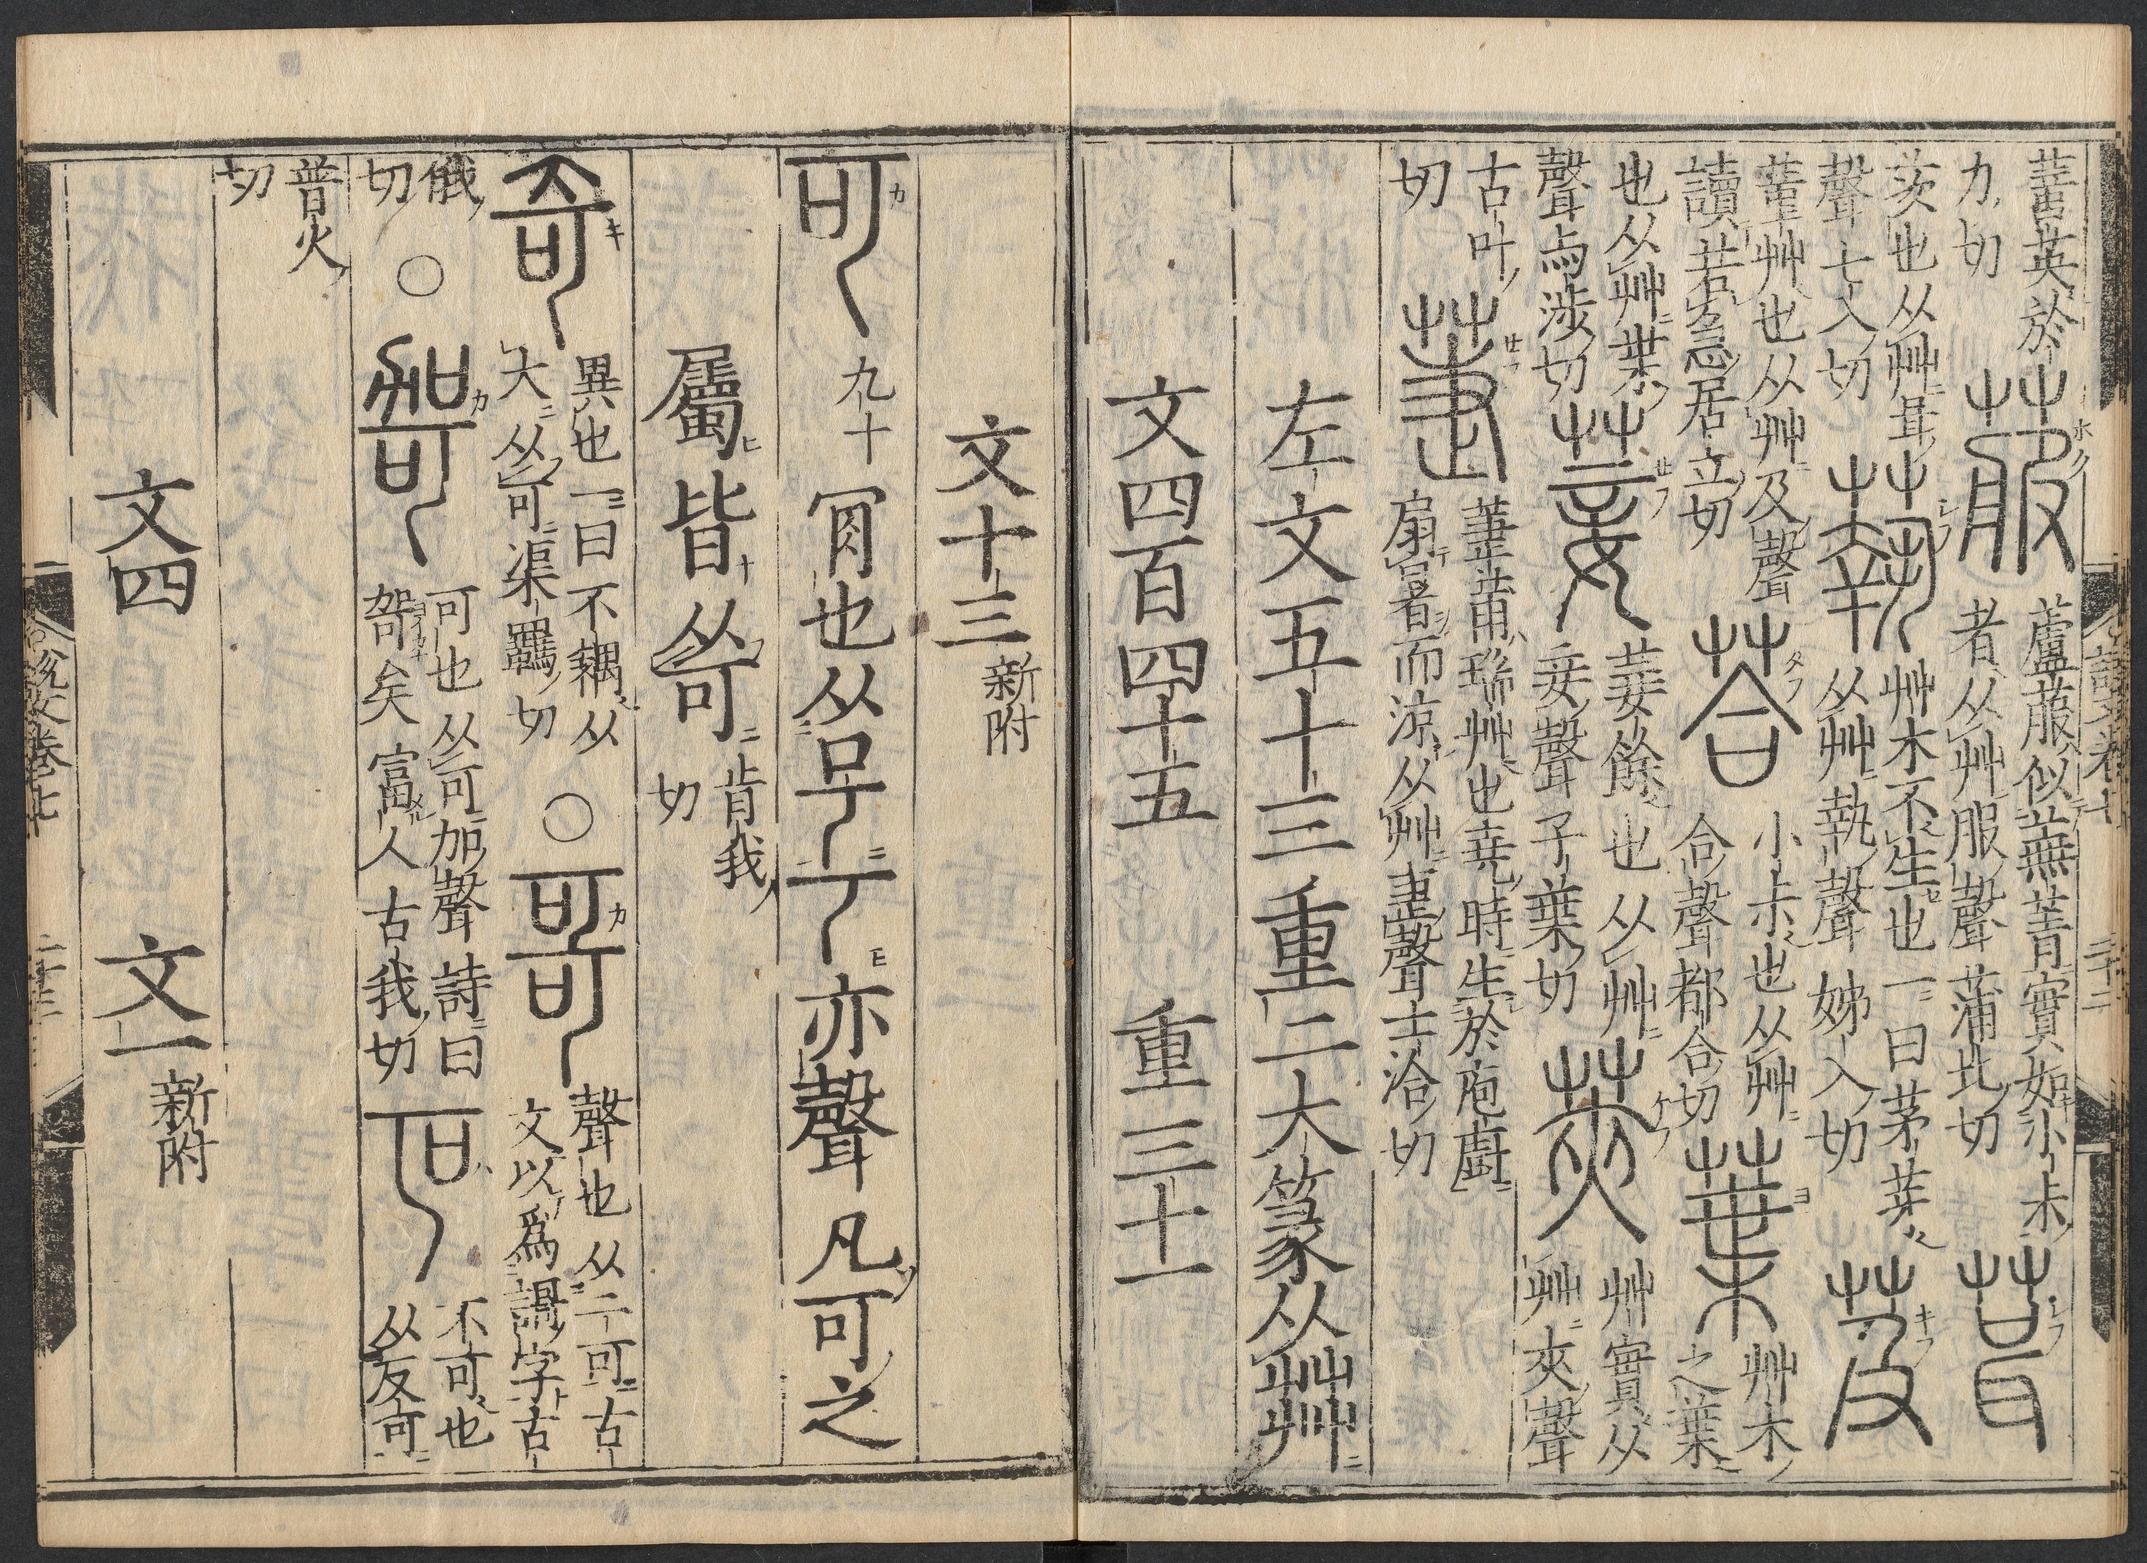 蕾英於
力切
菔
蘆菔似蕪菁實如小尗
者从艸服聲蒲北切
茨也从艸咠
聲七入切
艸木不生也一曰茅芽
从艸執聲姊入切
芨
菫艸也从艸及聲
讀若急居立切
荅
小尗也从艸
合聲都合切
葉
艸木
之葉
也从艸枼
聲与涉切
菨
菨餘也从艸
妾聲子葉切
莢
艸實从
艸夾聲
古叶
切
萐
萐莆瑞艸也堯時生於庖廚
扇暑而涼从艸疌聲士洽切
左文五十三重二大篆从茻
文四百四十五 重三十一
文十三新附
可 九十 肎也从𠀀𠀀亦聲凡可之
屬皆从可
肯我
切
奇
異也一曰不耦从
大从可渠羈切
○哥
聲也从二可古
文以爲謌字古
俄
切
○哿
可也从可加聲詩曰
哿矣富人古我切
叵
不可也
从反可
普火
切
文四 文一新附
說文卷七 二十二